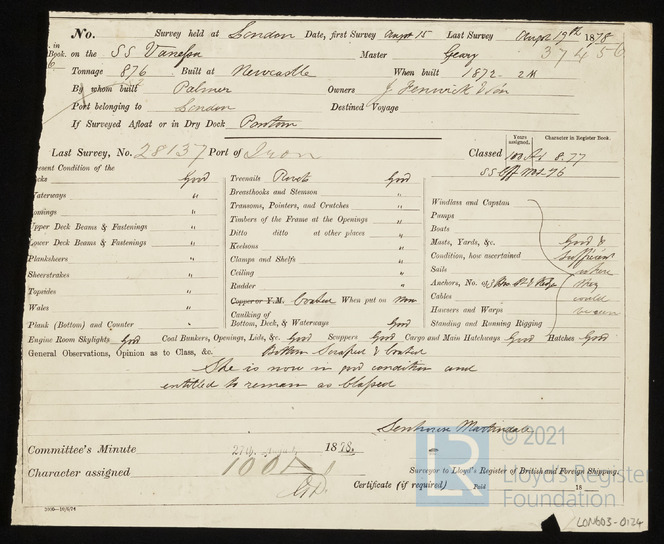 No. Survey held at London Date, first Survey Augst 15 Last Survey Augst 19th 1878
in Book. on the SS Vanessa Master Geary 37456
Tonnage 876 Built at Newcastle When built 1872 - 2M
By whom built Palmer Owners J Fenwick & Son
Port belonging to London Destined Voyage
If Surveyed Afloat or in Dry Dock Pontoon
Last Survey, No. 28137 Port of Iron Classed Years assigned. 100 A1 Character in Register Book. 8.77
SS No1-76
resent Condition of the
cks Good Treenails Rivets Good
aterways " Breasthooks and Stemson " Windlass and Capstan
omings " Transoms, Pointers, and Crutches " Pumps
Upper Deck Beams & Fastenings " Timbers of the Frame at the Openings " Boats
Lower Deck Beams & Fastenings " Ditto ditto at other places " Masts, Yards, &c. Good &
Planksheers " Keelsons " Condition, how ascertained sufficient
Sheerstrakes " Clamps and Shelfs " Sails where
Topsides " Ceiling " Anchors, No. of they
Wales " Rudder " Cables could
Copper or Y.M. Coated When put on Now Hawsers and Warps be seen
Plank (Bottom) and Counter " Caulking of Bottom, Deck, & Waterways Good Standing and Running Rigging
Engine Room Skylights Good Coal Bunkers, Openings, Lids, &c. Good Scuppers Good Cargo and Main Hatchways Good Hatches Good
General Observations, Opinion as to Class, &c. Bottom Scraped & Coated
She is now in good condition and
entitled to remain as Classed
Senhouse Martindale
Committee's Minute 27th August 1878.
Character assigned 100 A1
Surveyor to Lloyd's Register of British and Foreign Shipping.
Certificate (if required) Paid 18
2000-10/6/74
© 2021
LR Lloyd's Register
Foundation
LON603-0124